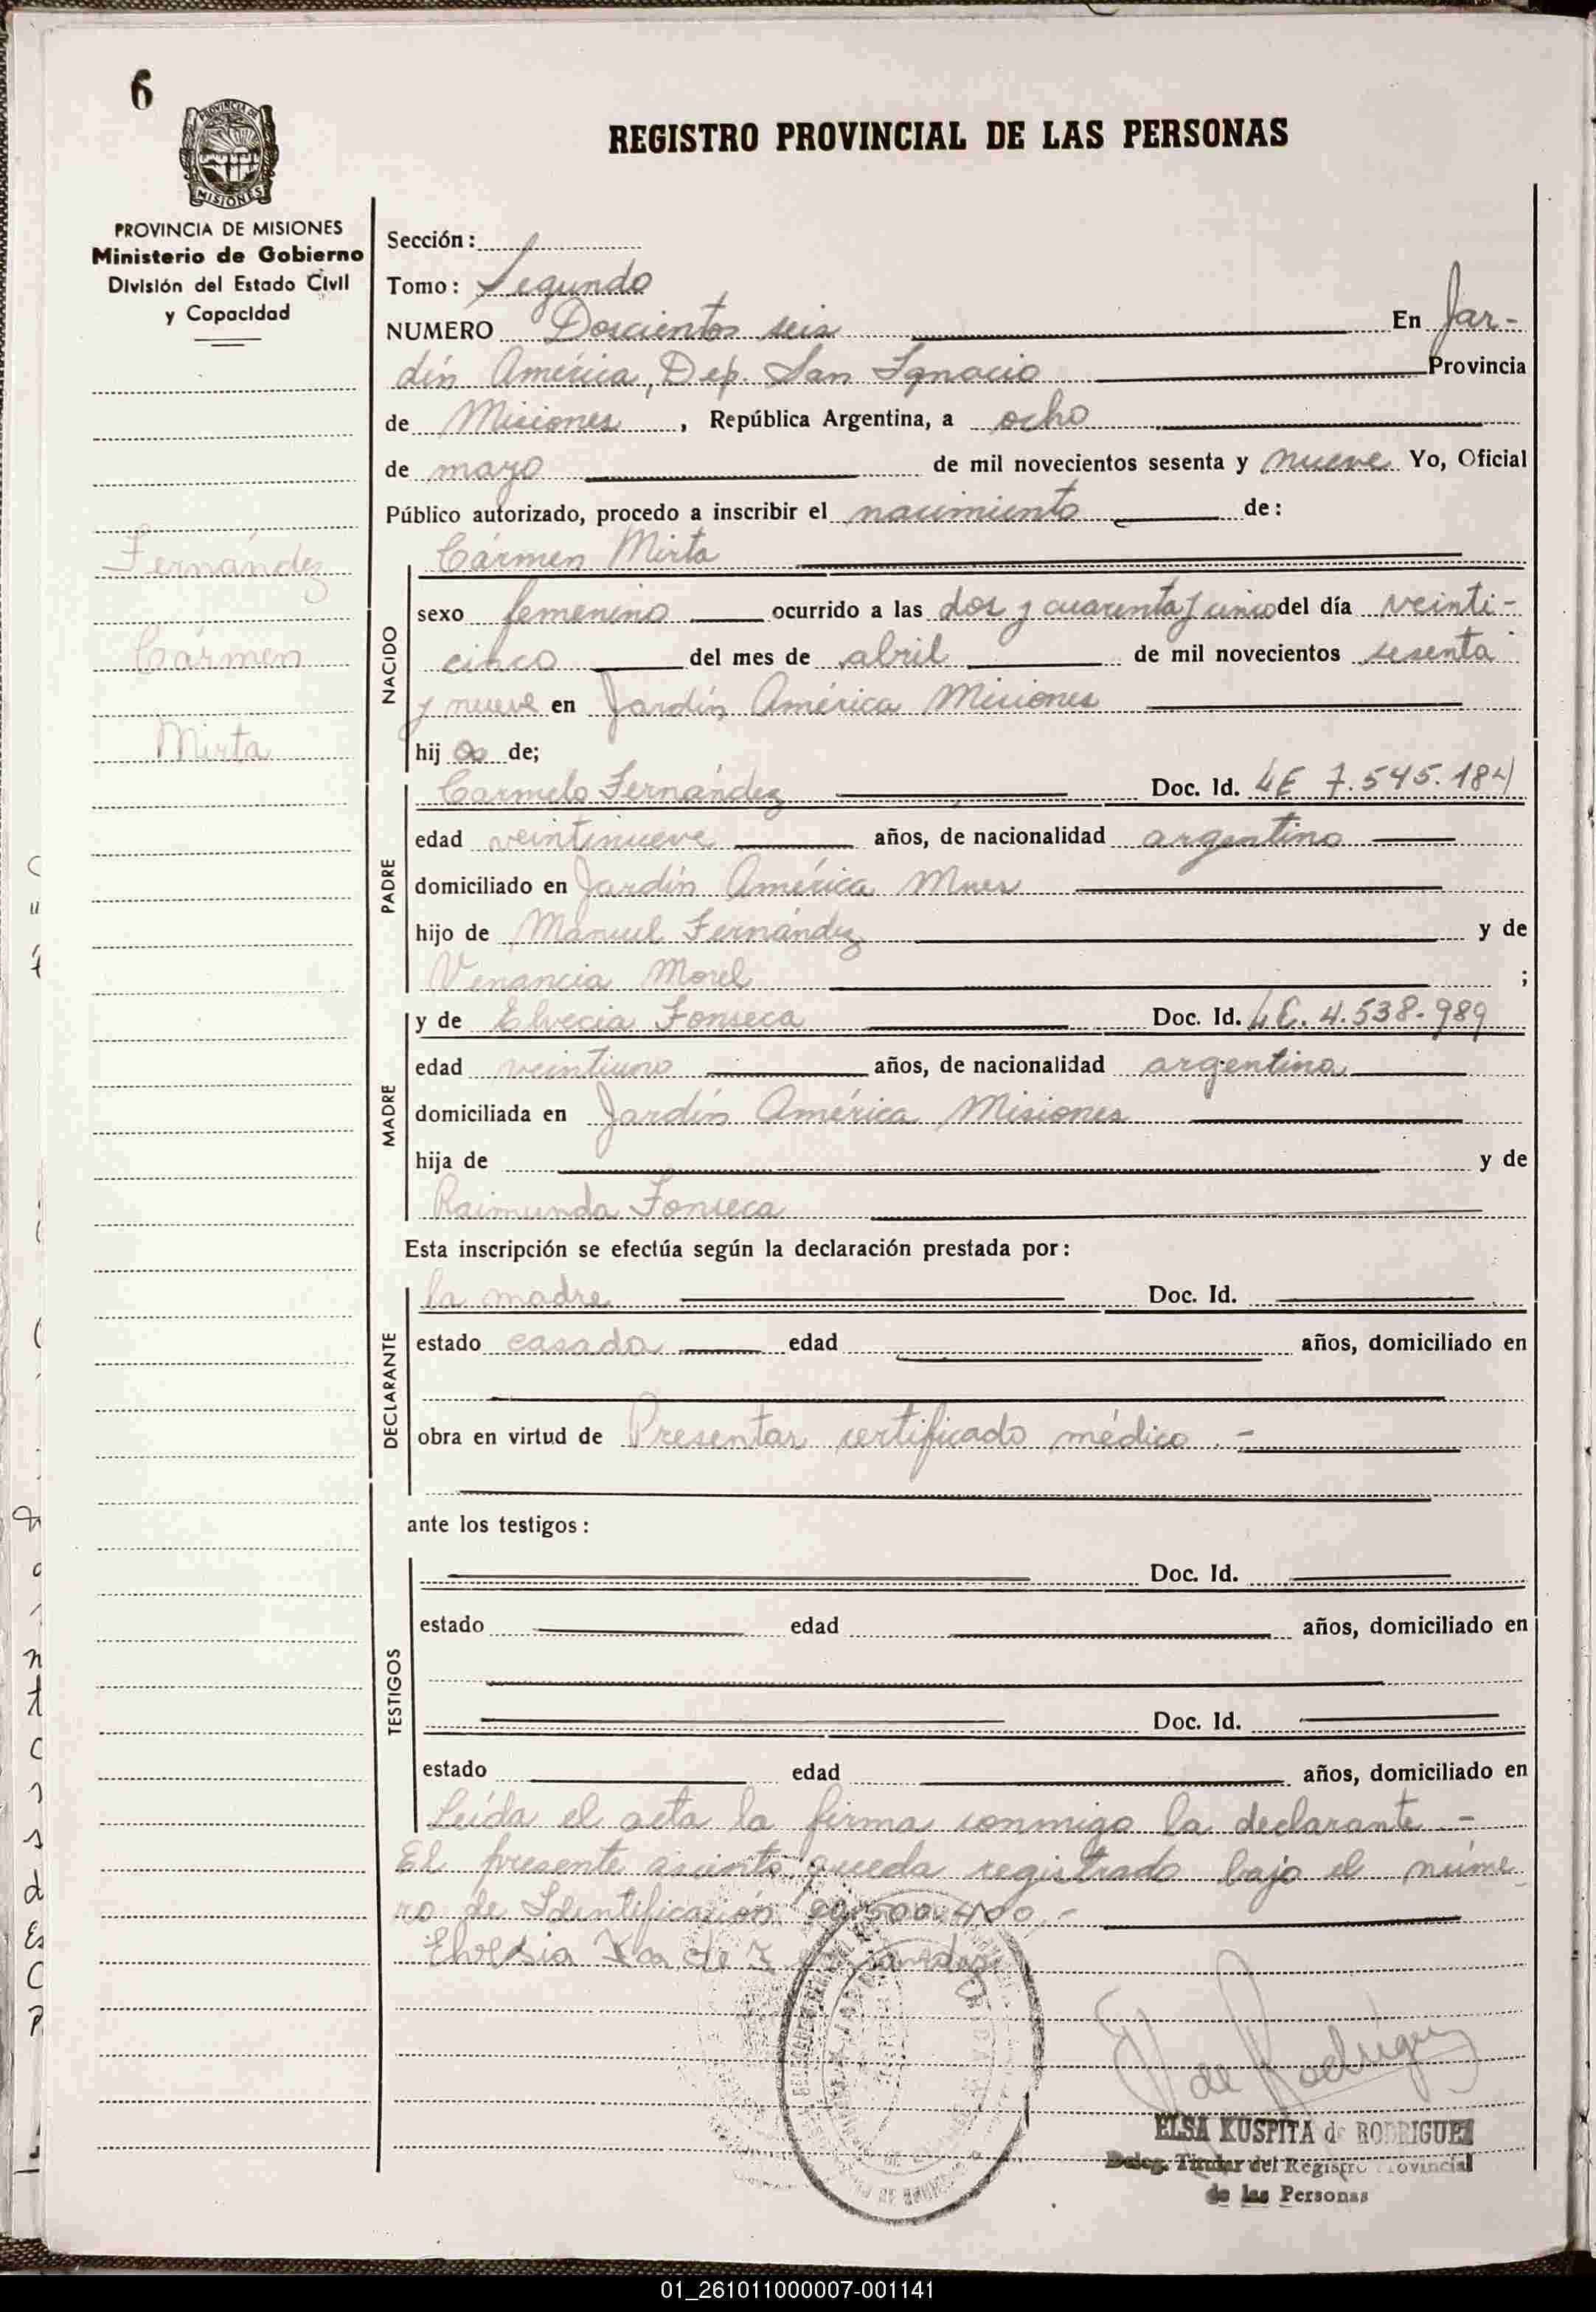 6
PROVINCIA DE
MISIONES
PROVINCIA DE MISIONES
Ministerio de Gobierno
División del Estado Civil
y Capacidad
Fernández
Cármen
Mirta
REGISTRO PROVINCIAL DE LAS PERSONAS
Sección:
Tomo: Segundo
NUMERO Doscientos seis En Jar-
dín América, Dep. San Ignacio Provincia
de Misiones, República Argentina, a ocho
de mayo de mil novecientos sesenta y nueve Yo, Oficial
Público autorizado, procedo a inscribir el nacimiento de:
NACIDO
Cármen Mirta
sexo femenino ocurrido a las dos y cuarenta y cinco del día veinti-
cinco del mes de abril de mil novecientos sesenta
y nueve en Jardín América Misiones
hija de;
PADRE
Carmelo Fernández Doc. Id. LE 7.545.184
edad veintinueve años, de nacionalidad argentino
domiciliado en Jardín América Mnes
hijo de Manuel Fernández y de
Venancia Morel ;
MADRE
y de Elvecia Fonseca Doc. Id. L.C. 4.538.989
edad veintiuno años, de nacionalidad argentina
domiciliada en Jardín América Misiones
hija de y de
Raimunda Fonseca
Esta inscripción se efectúa según la declaración prestada por:
DECLARANTE
la madre Doc. Id.
estado casada edad años, domiciliado en
obra en virtud de Presentar certificado médico.-
ante los testigos:
TESTIGOS
Doc. Id.
estado edad años, domiciliado en
Doc. Id.
estado edad años, domiciliado en
Leída el acta la firma conmigo la declarante -
El presente asiento queda registrado bajo el núme
ro de Identificación 20.500.400.-
de
de Rodríguez
ELSA KUSPITA de RODRIGUEZ
Deleg. Titular del Registro Provincial
de las Personas
01_261011000007-001141